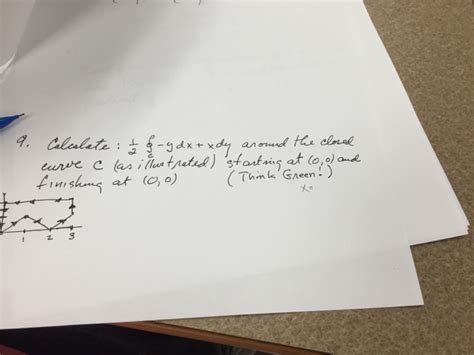 9. Calculate : 1/2 ∮_C -y dx + x dy around the closed
curve C (as illustrated) starting at (0,0) and
finishing at (0,0) (Think Green!)
1 2 3